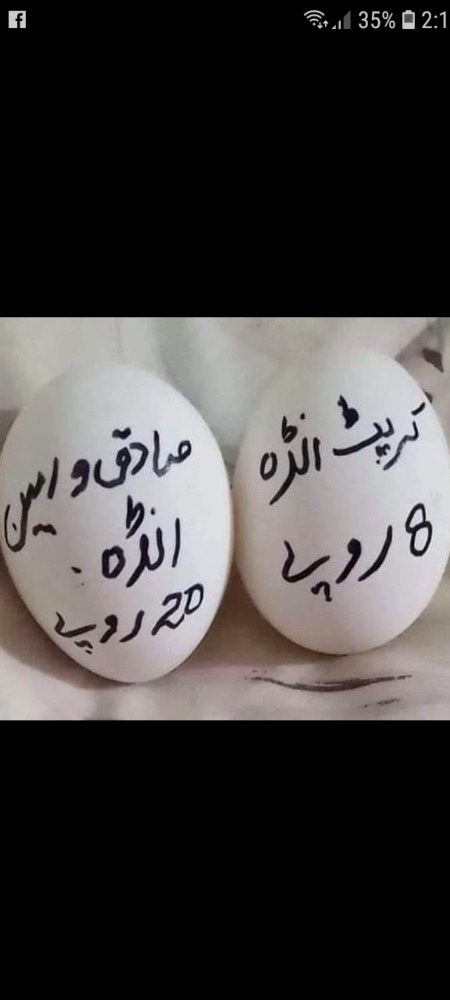 35% 2:1
کرپٹ انڈہ
8 روپے
صادق و امین
انڈہ
20 روپے